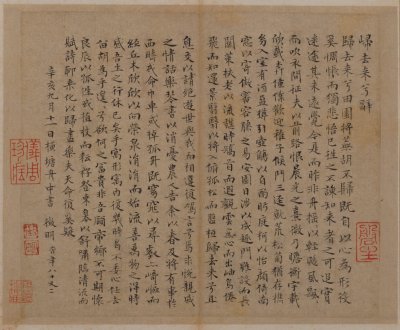 歸去來兮辭
歸去來兮田園將蕪胡不歸既自以心為形役
奚惆悵而獨悲悟已往之不諫知來者之可追實
迷途其未遠覺今是而昨非舟搖搖以輕颺風飄飄
而吹衣問征夫以前路恨晨光之熹微乃瞻衡宇載
欣載奔僮僕歡迎稚子候門三逕就荒松菊猶存攜
幼入室有酒盈樽引壺觴以自酌眄庭柯以怡顏倚南
窓以寄傲審容膝之易安園日涉以成趣門雖設而長
關策扶老以流憩時矯首而遐觀雲無心而出岫鳥倦
飛而知還景翳翳以將入撫孤松而盤桓歸去來兮且
息交以請絕遊世與我而相違復駕言兮焉求悅親戚
之情話樂琴書以消憂農人告余以春及將有事於
西疇或命巾車或棹孤舟既窈窕以尋壑亦崎嶇而
經丘木欣欣以向榮泉涓涓而始流善萬物之得時
感吾生之行休已矣乎寓形宇內復幾時曷不委心任去
留胡為乎遑遑兮欲何之富貴非吾願帝鄉不可期懷
良辰以孤往或植杖而耘耔登東皋以舒嘯臨清流而
賦詩聊乘化以歸盡樂夫天命復奚疑
辛亥九月十一日橫塘舟中書 徵明 時年八十又二